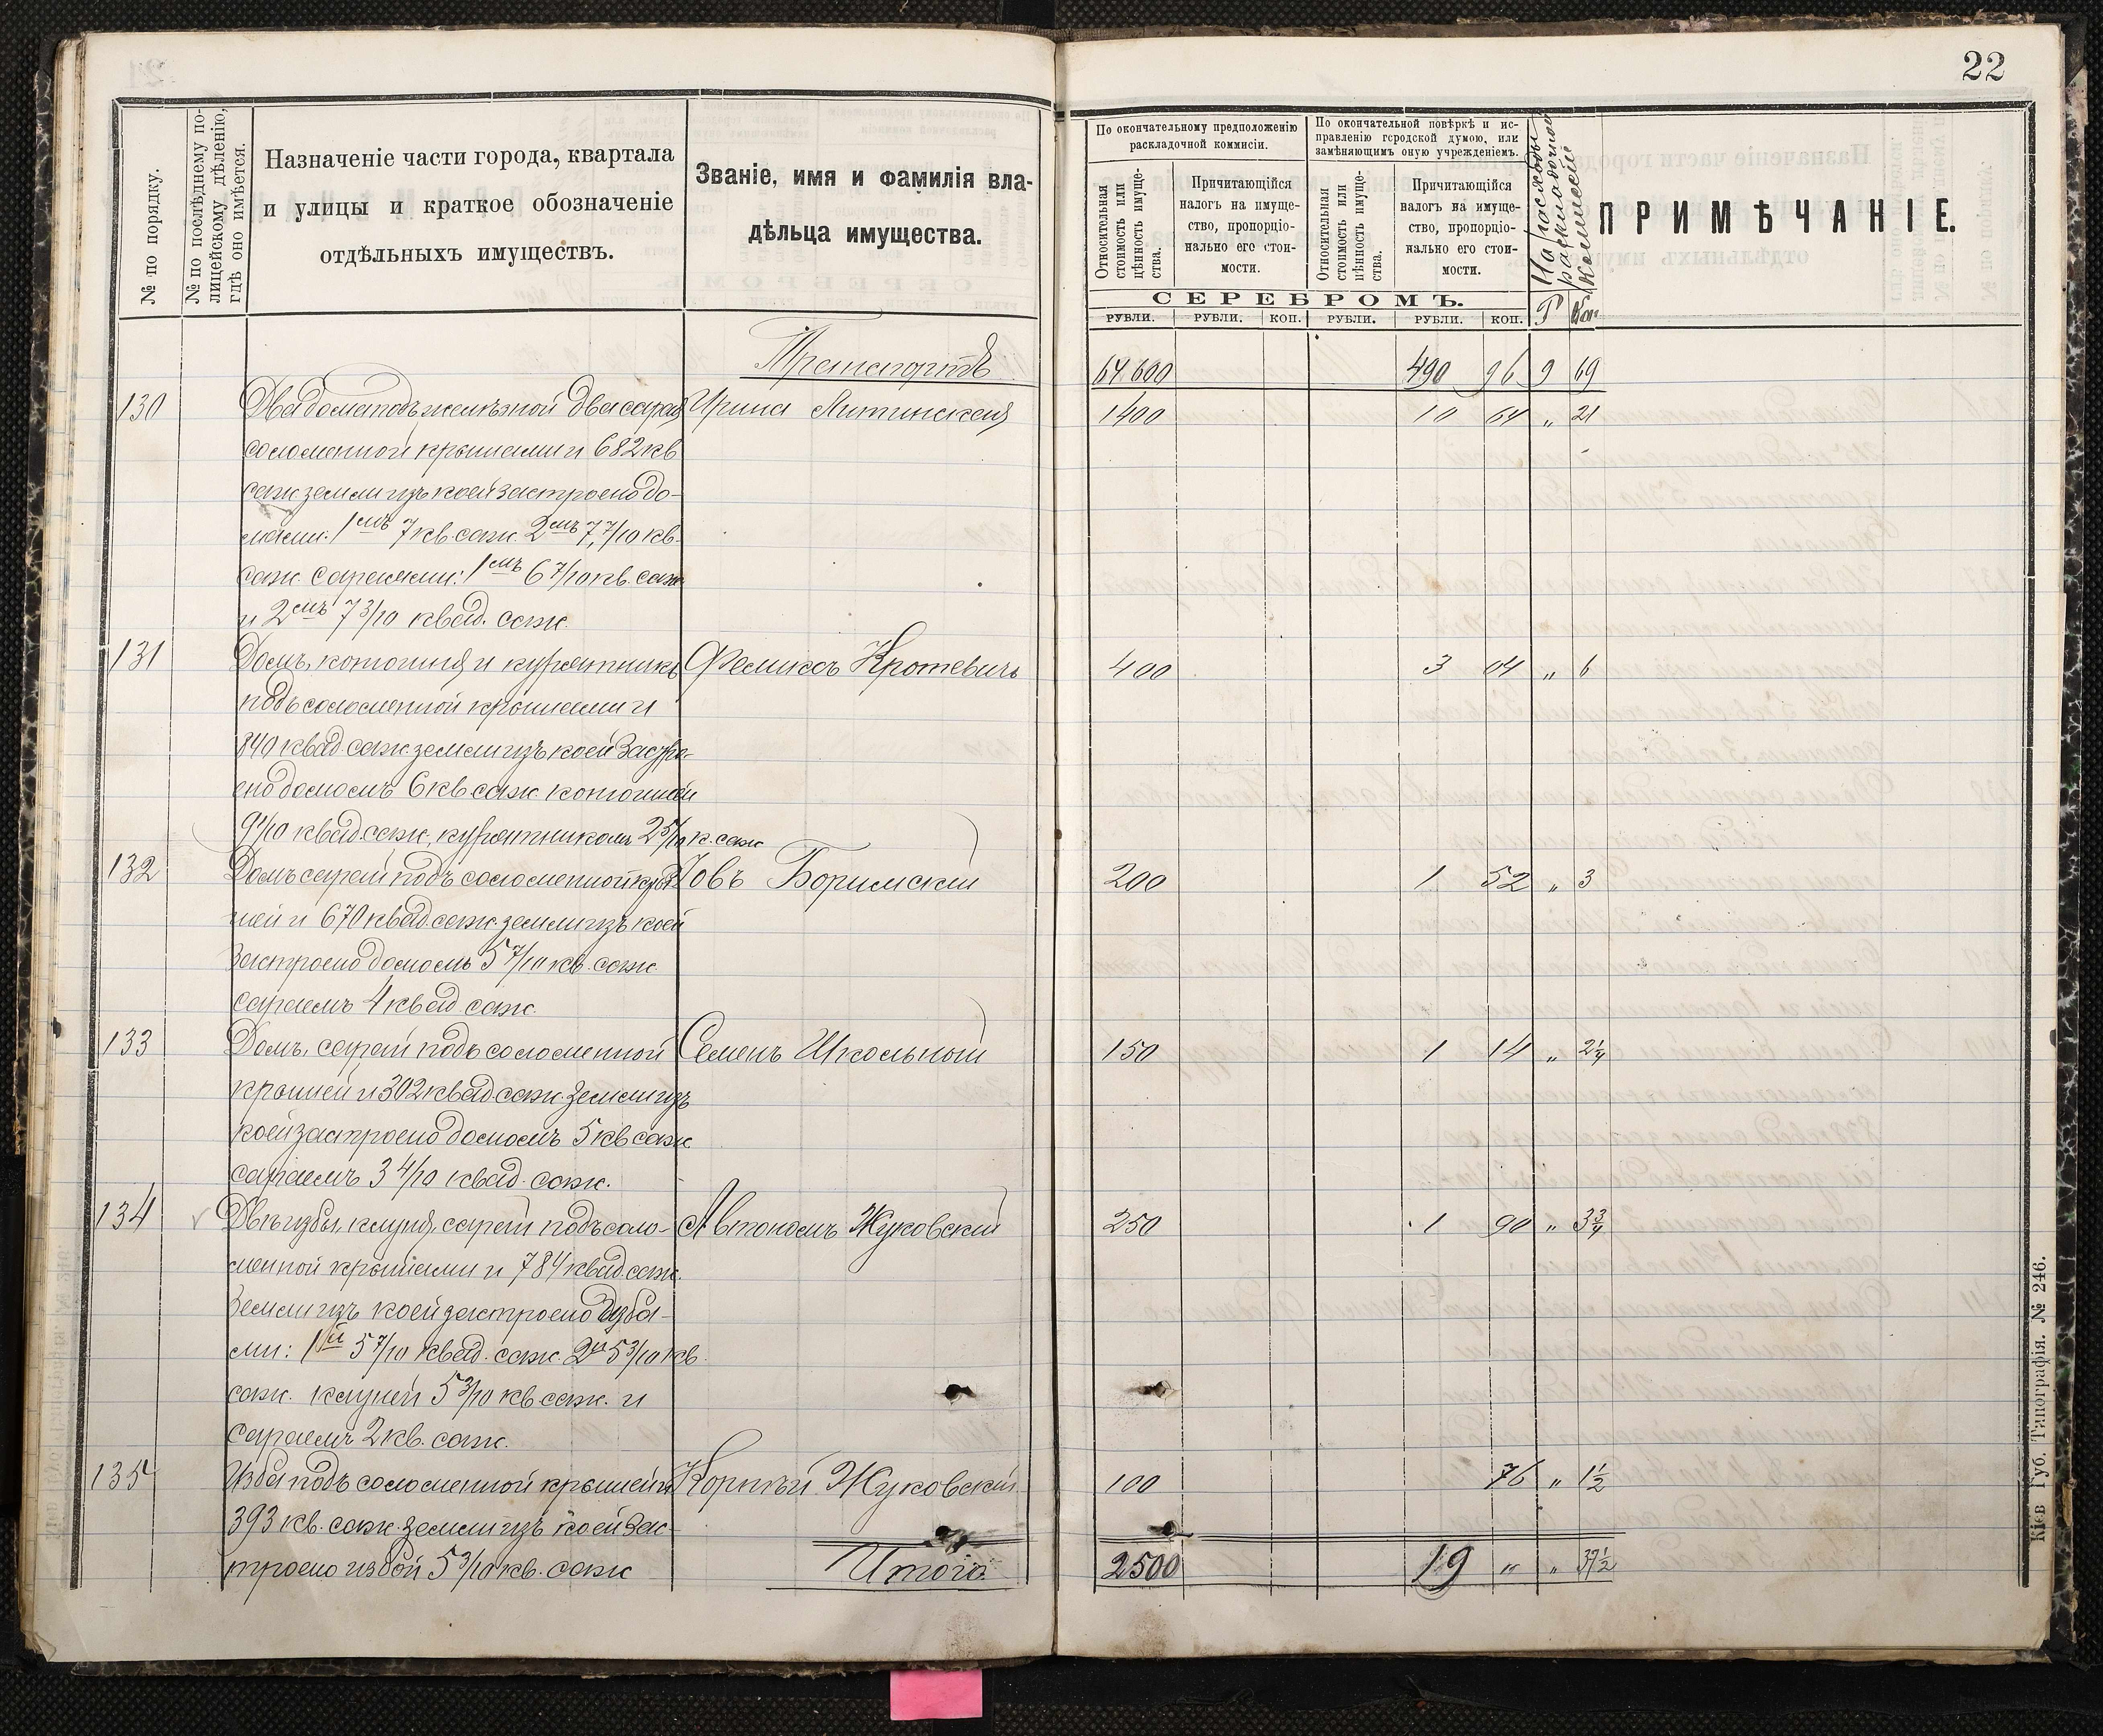 22
№ по порядку.
№ по послѣднему по-
лицейскому дѣленію,
гдѣ оно имѣется.
Назначеніе части города, квартала
и улицы и краткое обозначеніе
отдѣльныхъ имуществъ.
Званіе, имя и фамилія вла-
дѣльца имущества.
По окончательному предположенію
раскладочной коммисіи.
По окончательной повѣркѣ и ис-
правленію городской думою, или
замѣняющимъ оную учрежденіемъ.
Относительная
стоимость или
цѣнность имуще-
ства.
Причитающійся
налогъ на имуще-
ство, пропорціо-
нально его стои-
мости.
Относительная
стоимость или
цѣнность имуще-
ства.
Причитающійся
налогъ на имуще-
ство, пропорціо-
нально его стои-
мости.
На расходы
раскладочной
Коммисіи
ПРИМѢЧАНІЕ.
СЕРЕБРОМЪ.
РУБЛИ. РУБЛИ. КОП. РУБЛИ. РУБЛИ. КОП. Р Коп
Транспортъ 64.600 490 96 9 69
130 Два дома подъ желѣзной два сарая Ирина Литинская 1400 10 64 „ 21
соломенной крышами и 682 кв
саж земли изъ коей застроено до-
мами: 1мъ 7 кв. саж. 2мъ 7,7/10 кв.
саж. сараями: 1мъ 6 7/10 кв. саж
и 2мъ 7 3/10 квад. саж.
131 Домъ, конюшня и курятникъ Феликсъ Кротевичъ 400 3 04 „ 6
подъ соломенной крышами и
840 квад. саж. земли изъ коей застро-
ено домомъ 6 кв саж. конюшней
9 1/10 квад. саж, курятникомъ 2 5/10 к. саж
132 Домъ сарай подъ соломенной кры- Іовъ Боримскій 200 1 52 „ 3
шей и 670 квад. саж. земли изъ коей
застроено домомъ 5 7/10 кв. саж.
сараемъ 4 квад саж.
133 Домъ, сарай подъ соломенной Семенъ Школьный 150 1 14 „ 2¼
крышей и 302 квад. саж. земли изъ
коей застроено домомъ 5 кв саж
сараемъ 3 4/10 квад. саж.
134 Двѣ избы, клуня, сарай подъ соло- Автономъ Жуковскій 250 1 90 „ 3¾
менной крышами и 784 квад. саж.
земли изъ коей застроено изба-
ми: 1й 5 7/10 квад. саж. 2й 5 3/10 кв.
саж. клуней 5 3/10 кв саж. и
сараемъ 2 кв. саж.
135 Изба подъ соломенной крышей и Корнѣй Жуковскій 100 76 „ 1½
393 кв. саж. земли изъ коей зас-
троено избой 5 3/10 кв. саж
Итого 2500 19 „ „ 37½
Кіев Губ. Типографія. № 246.